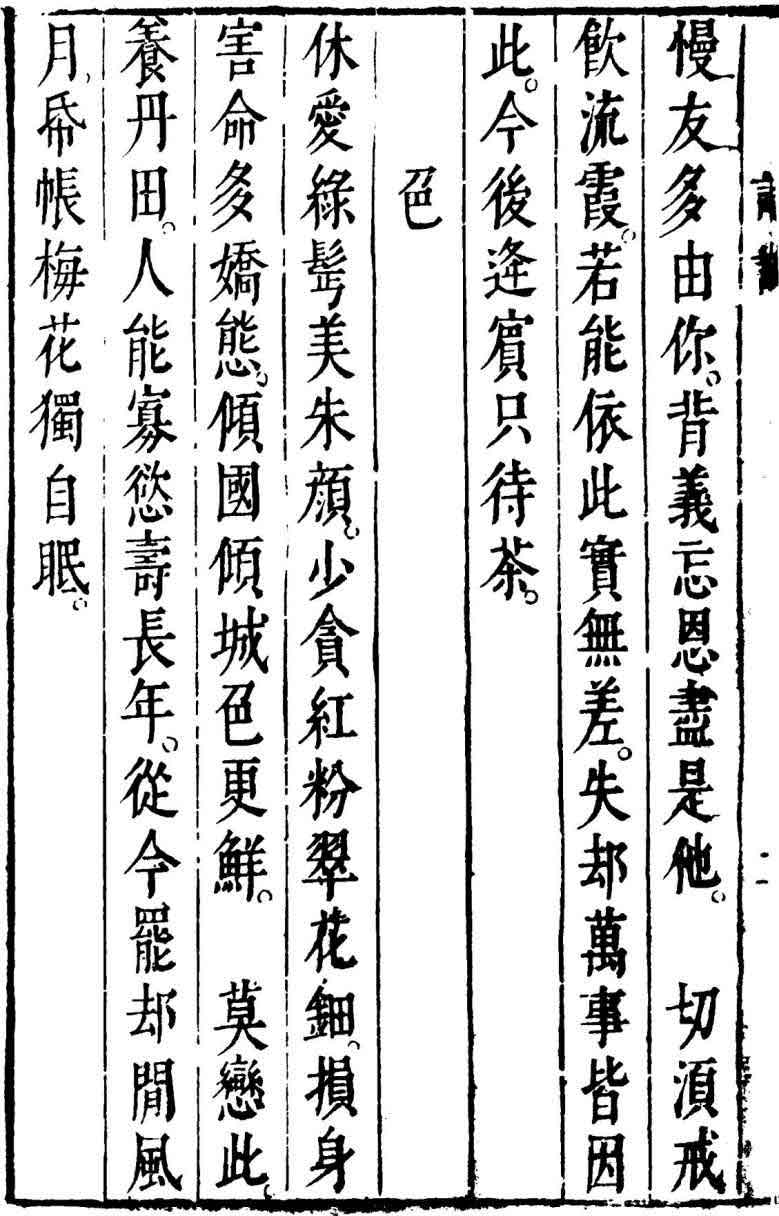 慢友多由你。背義忘恩盡是他。　切須戒
飲流霞。若能依此實無差。失却萬事皆因
此。今後逢賓只待茶。
色
休愛綠髩美朱顔。少貪紅粉翠花鈿。損身
害命多嬌態。傾國傾城色更鮮。　莫戀此。
養丹田。人能寡慾壽長年。從今罷却閒風
月。帋帳梅花獨自眠。